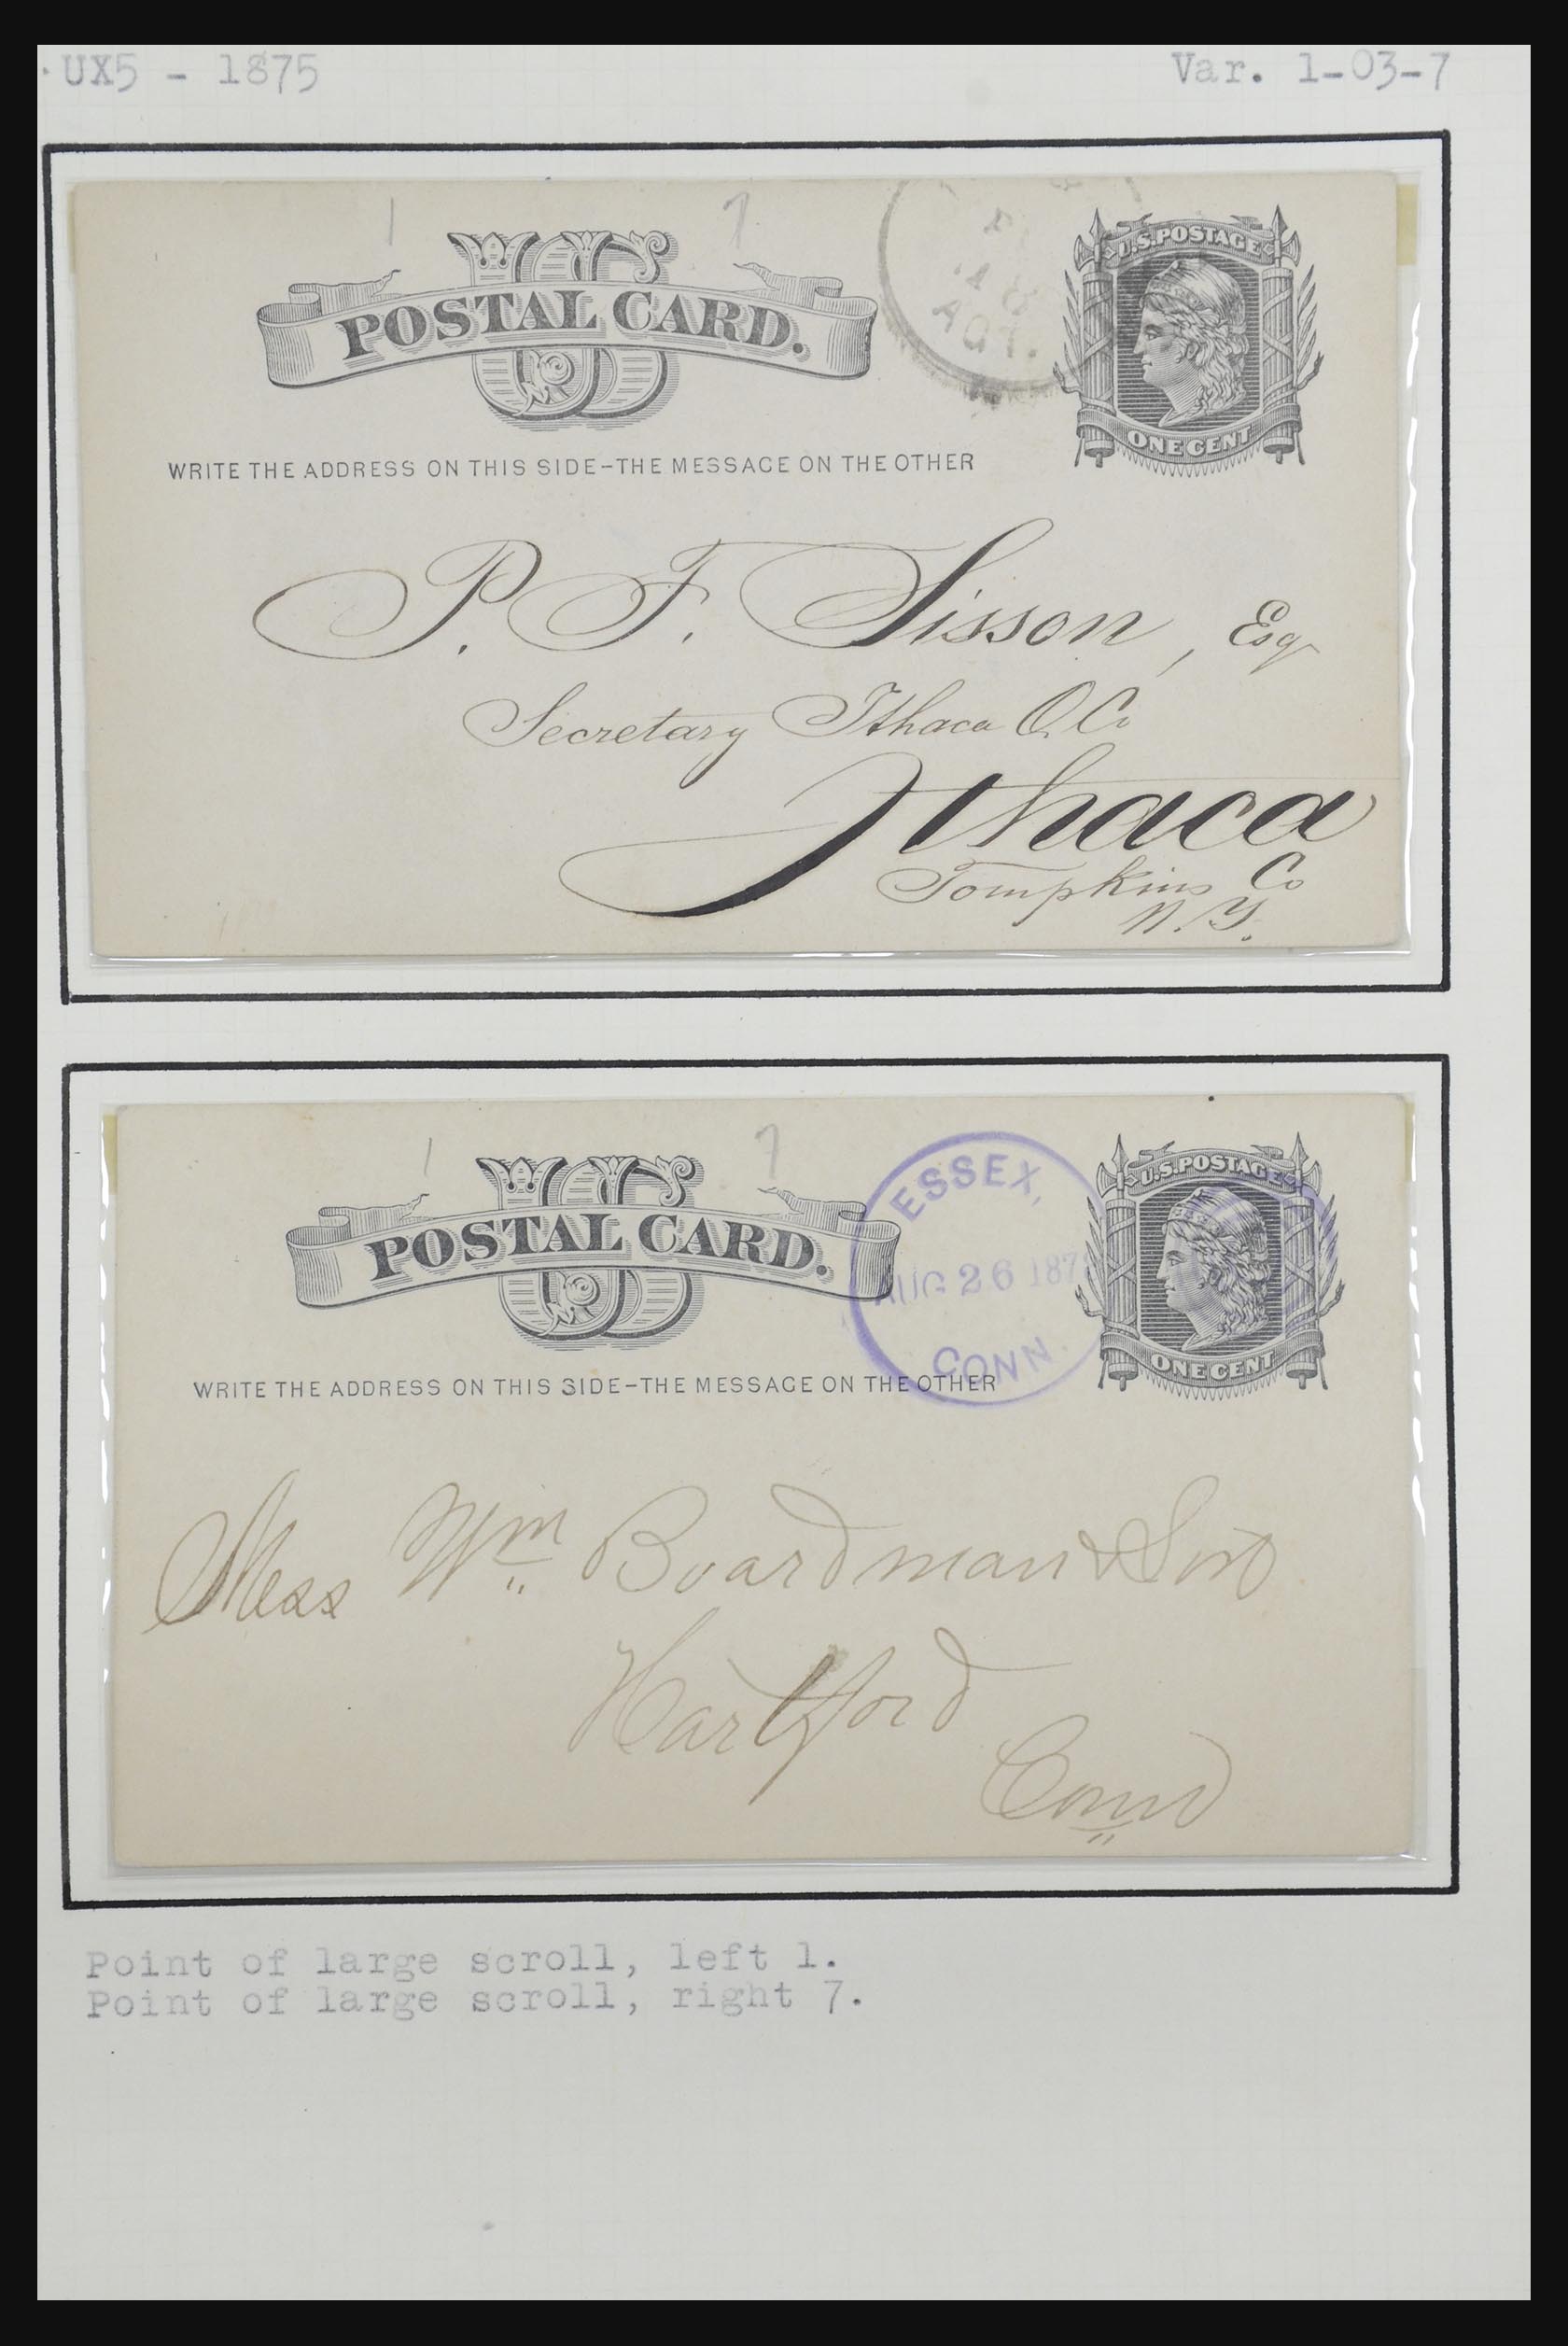 UX5 - 1875
Var. 1-03-7
1 7
U.S. POSTAGE
US
POSTAL CARD.
ONE CENT
WRITE THE ADDRESS ON THIS SIDE-THE MESSAGE ON THE OTHER
P. F. Sisson, Esq
Secretary Ithaca O. Co
Ithaca
Tompkins Co
N.Y.
1 7
ESSEX,
U.S. POSTAGE
US
POSTAL CARD.
AUG 26 187
ONE CENT
CONN.
WRITE THE ADDRESS ON THIS SIDE-THE MESSAGE ON THE OTHER
Mess Wm Boardman & Son
Hartford
Conn
Point of large scroll, left 1.
Point of large scroll, right 7.